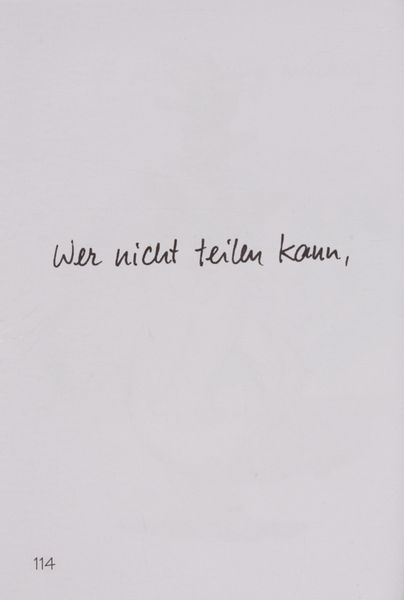 Wer nicht teilen kann,
114